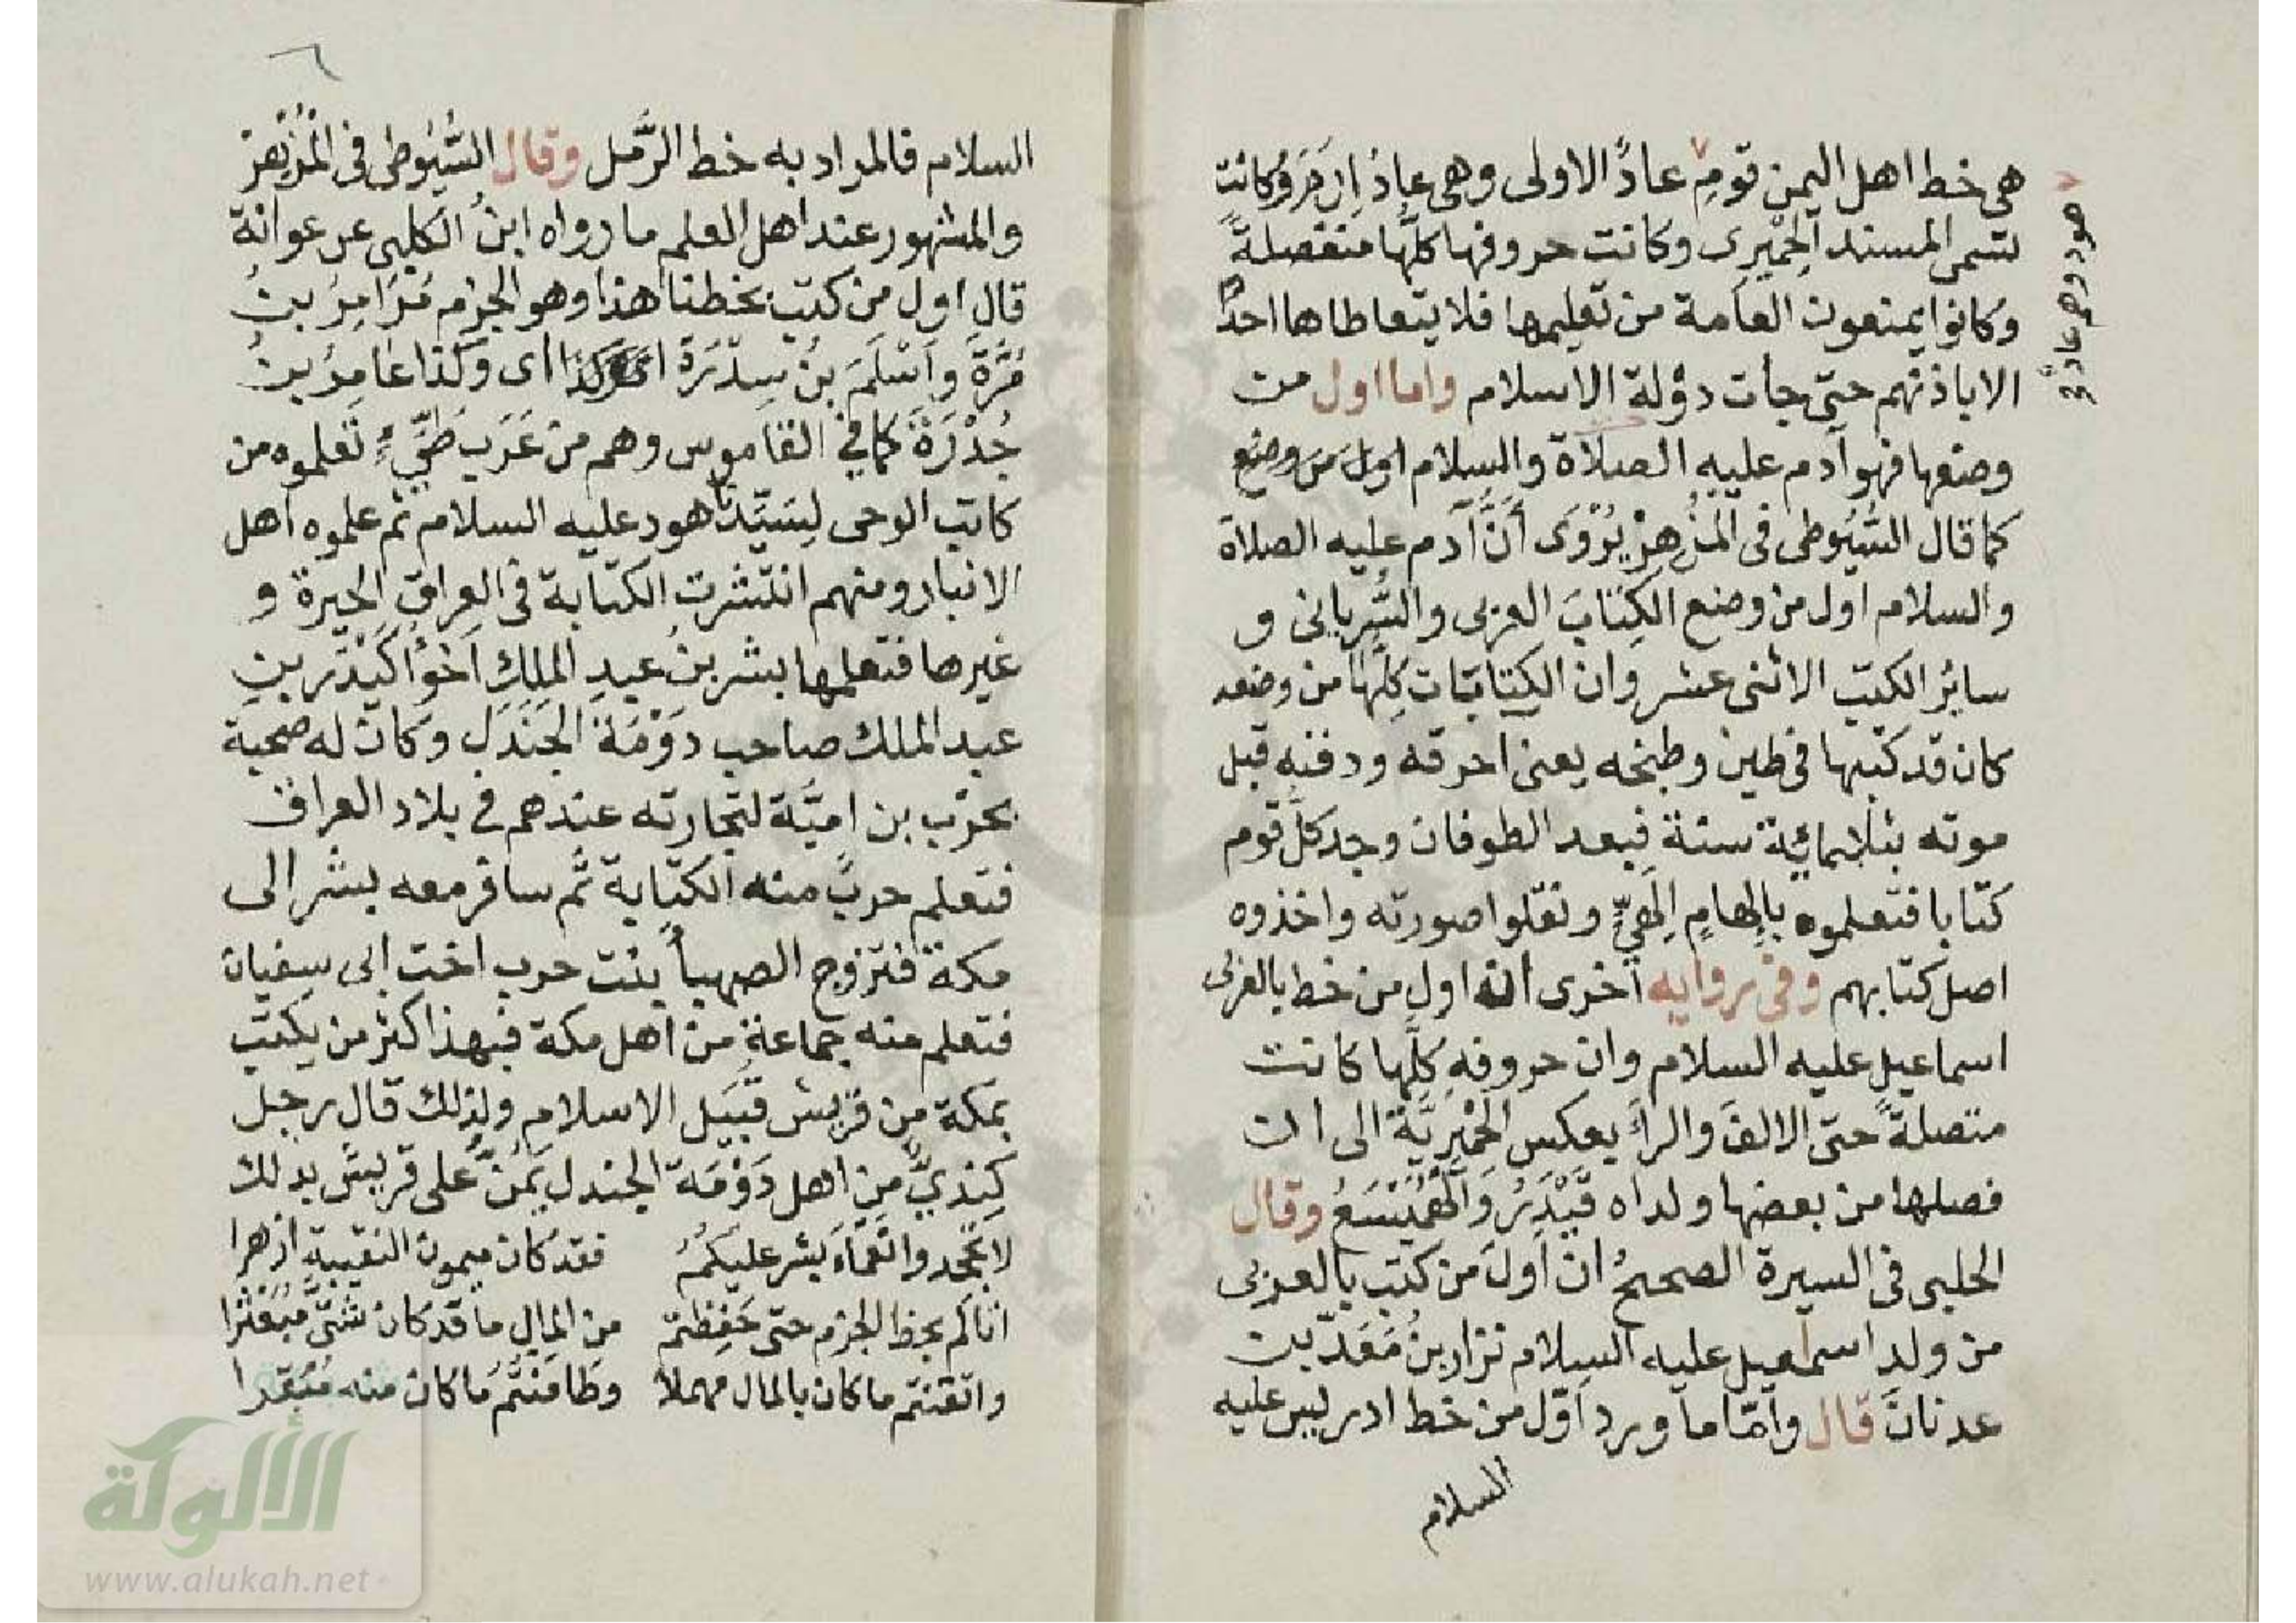 هي خط اهل اليمن قومِ عادً الاولى وهى عاد اِرَمَ وكانت
تسمى المسند الحِمْيرى وكانت حروفها كلُّها منفصلةً
وكانوا يمنعون العامة من تعليمها فلا يتعاطاها احدٌ
الا باذنهم حتى جأت دَوْلة الاسلام واما اول من
وضعها فهو آدم عليه الصلاة والسلام اول من وضع
كما قال السُّيُوطى فى المُزْهِرْ يُرْوَى أَنَّ آدم عليه الصلاة
والسلام اول من وضع الكِتَابَ العربى والسُّريانى و
سائر الكتب الاثنى عشر وان الكِتابات كلِّها من وضعه
كان قد كتبها فى طين وطبخه يعنى احرقه ودفنه قبل
موته بثلاثمائة سنة فبعد الطوفان وجد كلّ قوم
كتابا فتعلموه بإلهامٍ إلهيٍّ ونقلوا صورته واخذوه
اصل كتابهم وفى روايه أخرى انه اول من خط بالعربى
اسماعيل عليه السلام وان حروفه كلَّها كانت
متصلةً حتى الالفَ والرأَ بعكس الحِمْيريَّة الى ان
فصلها من بعضها ولداه قَيْدَرُ وَالهَمَيْسَعُ وقال
الحلبى فى السيرة الصحيحُ ان اولَ من كتب بالعربى
من ولد اسمعيل عليه السلام نزار بنُ مَعَدّ بن
عدنانَ قال وأمّا ما ورد اوّل من خط ادريس عليه
السلام
هود وهم عاد
٦
السلام فالمراد به خط الرَّمل وقال السُّيُوطى فى المُزْهِر
والمشهور عند اهل العلم ما رواه ابنُ الكلبى عن عوانة
قال اول من كتب بخطنا هذا وهو الجزم مُرَامِرُ بنُ
مُرَّةَ وَاَسْلَمَ بنُ سِدْرَةَ اى وكذا عَامِرُ بنُ
جُدْرَةَ كما في القاموس وهم من عَرَب طَيِّءٍ تعلموه من
كاتب الوحى لِسَيِّدنا هود عليه السلام ثم علموه اهل
الانبار ومنهم انتشرت الكتابة فى العراقِ الحيرة و
غيرها فتعلمها بشر بنُ عبدِ الملِكِ اَخُوا كَيْدَر بنِ
عبد الملك صاحب دَوْمَة الجَنْدَلِ وكان له صحبة
بحَرْب بن اميَّة لتجارته عندهم في بلاد العراق
فتعلم حربٌ منه الكتابة ثم سافر معه بشر الى
مكة فتزوج الصهبأَ بنت حرب اخت ابى سفيان
فتعلم منه جماعة من اهل مكة فبهذا كثر من يكتب
بمكة من قريش قُبَيل الاسلام ولذلك قال رجل
كِنْدِيٌّ من اهل دَوْمَة الجندل يَمُنُّ على قريش بذلك
لا تجحدوا نَعْمَاءَ بشر عليكمُ فقد كان ميمون النقيبة ازهرا
اتاكم بخط الجزم حتى حَفِظتم من المال ما قد كان شتّى مُبَعْثَرا
واتقنتم ما كان بالمال مهملاً وطَامَنْتُم ما كان منه مُبَقَّرا
الألوكة
www.alukah.net